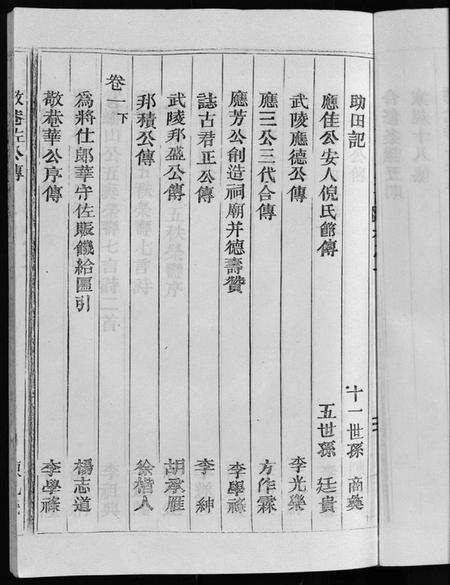 助田記 十一世孫 商義
應佳公安人倪氏節傳 五世孫 廷貴
武陵應德公傳 李光樂
應三公三代合傳 方作霖
應芳公創造祠廟并德壽贊 李學祿
誌古君正公傳 李紳
武陵邦盛公傳 胡承雁
邦積公傳 徐楷人
卷一下
為將仕郎華宇佐賑饑給匾引 楊志道
敬菴華公序傳 李學祿
敬菴左公傳